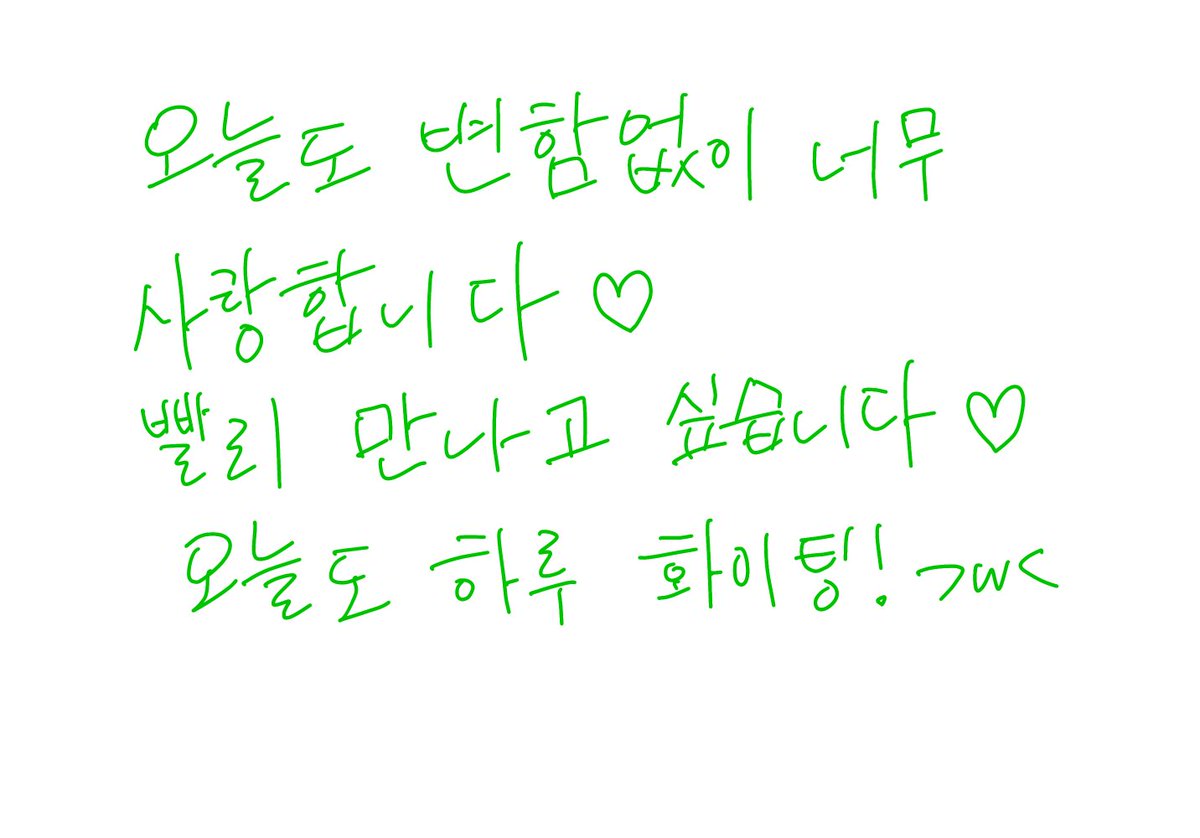 오늘도 변함없이 너무
사랑합니다 ♡
빨리 만나고 싶습니다 ♡
오늘도 하루 화이팅! >w<